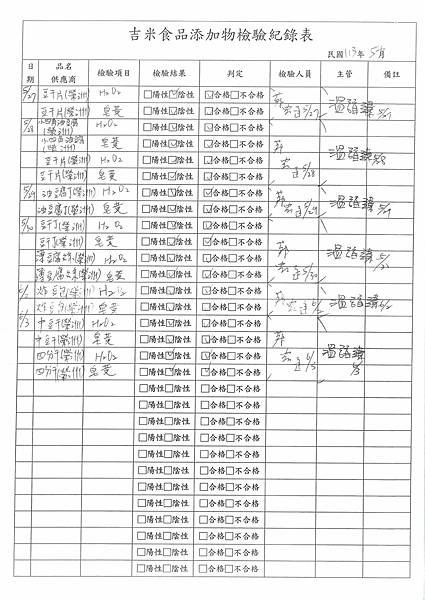 吉米食品添加物檢驗紀錄表
民國113年5月
日期 品名 供應商 檢驗項目 檢驗結果 判定 檢驗人員 主管 備註
5/27 豆干片(榮洲) H2O2 □陽性☑陰性 ☑合格□不合格
豆干片(榮洲) 皂黃 □陽性☑陰性 ☑合格□不合格 5/27 溫 5/27
5/28 小四角油豆腐(榮洲) H2O2 □陽性☑陰性 ☑合格□不合格
小四角油豆腐(榮洲) 皂黃 □陽性☑陰性 ☑合格□不合格
豆干片(榮洲) H2O2 □陽性☑陰性 ☑合格□不合格
豆干片(榮洲) 皂黃 □陽性☑陰性 ☑合格□不合格 5/28 溫 5/28
5/29 油豆腐丁(榮洲) H2O2 □陽性☑陰性 ☑合格□不合格
油豆腐丁(榮洲) 皂黃 □陽性☑陰性 ☑合格□不合格 5/29 溫 5/29
5/30 豆干丁(榮洲) H2O2 □陽性☑陰性 ☑合格□不合格
豆干丁(榮洲) 皂黃 □陽性☑陰性 ☑合格□不合格
(榮洲) H2O2 □陽性☑陰性 ☑合格□不合格
(榮洲) 皂黃 □陽性☑陰性 ☑合格□不合格 5/30 溫
炸豆包(榮洲) H2O2 □陽性☑陰性 ☑合格□不合格
炸豆包(榮洲) 皂黃 □陽性☑陰性 ☑合格□不合格 溫
6/3 中豆干(榮洲) H2O2 □陽性☑陰性 ☑合格□不合格
中豆干(榮洲) 皂黃 □陽性☑陰性 ☑合格□不合格
四分干(榮洲) H2O2 □陽性☑陰性 ☑合格□不合格
四分干(榮洲) 皂黃 □陽性☑陰性 ☑合格□不合格 6/3 溫 6/3
□陽性□陰性 □合格□不合格
□陽性□陰性 □合格□不合格
□陽性□陰性 □合格□不合格
□陽性□陰性 □合格□不合格
□陽性□陰性 □合格□不合格
□陽性□陰性 □合格□不合格
□陽性□陰性 □合格□不合格
□陽性□陰性 □合格□不合格
□陽性□陰性 □合格□不合格
□陽性□陰性 □合格□不合格
□陽性□陰性 □合格□不合格
□陽性□陰性 □合格□不合格